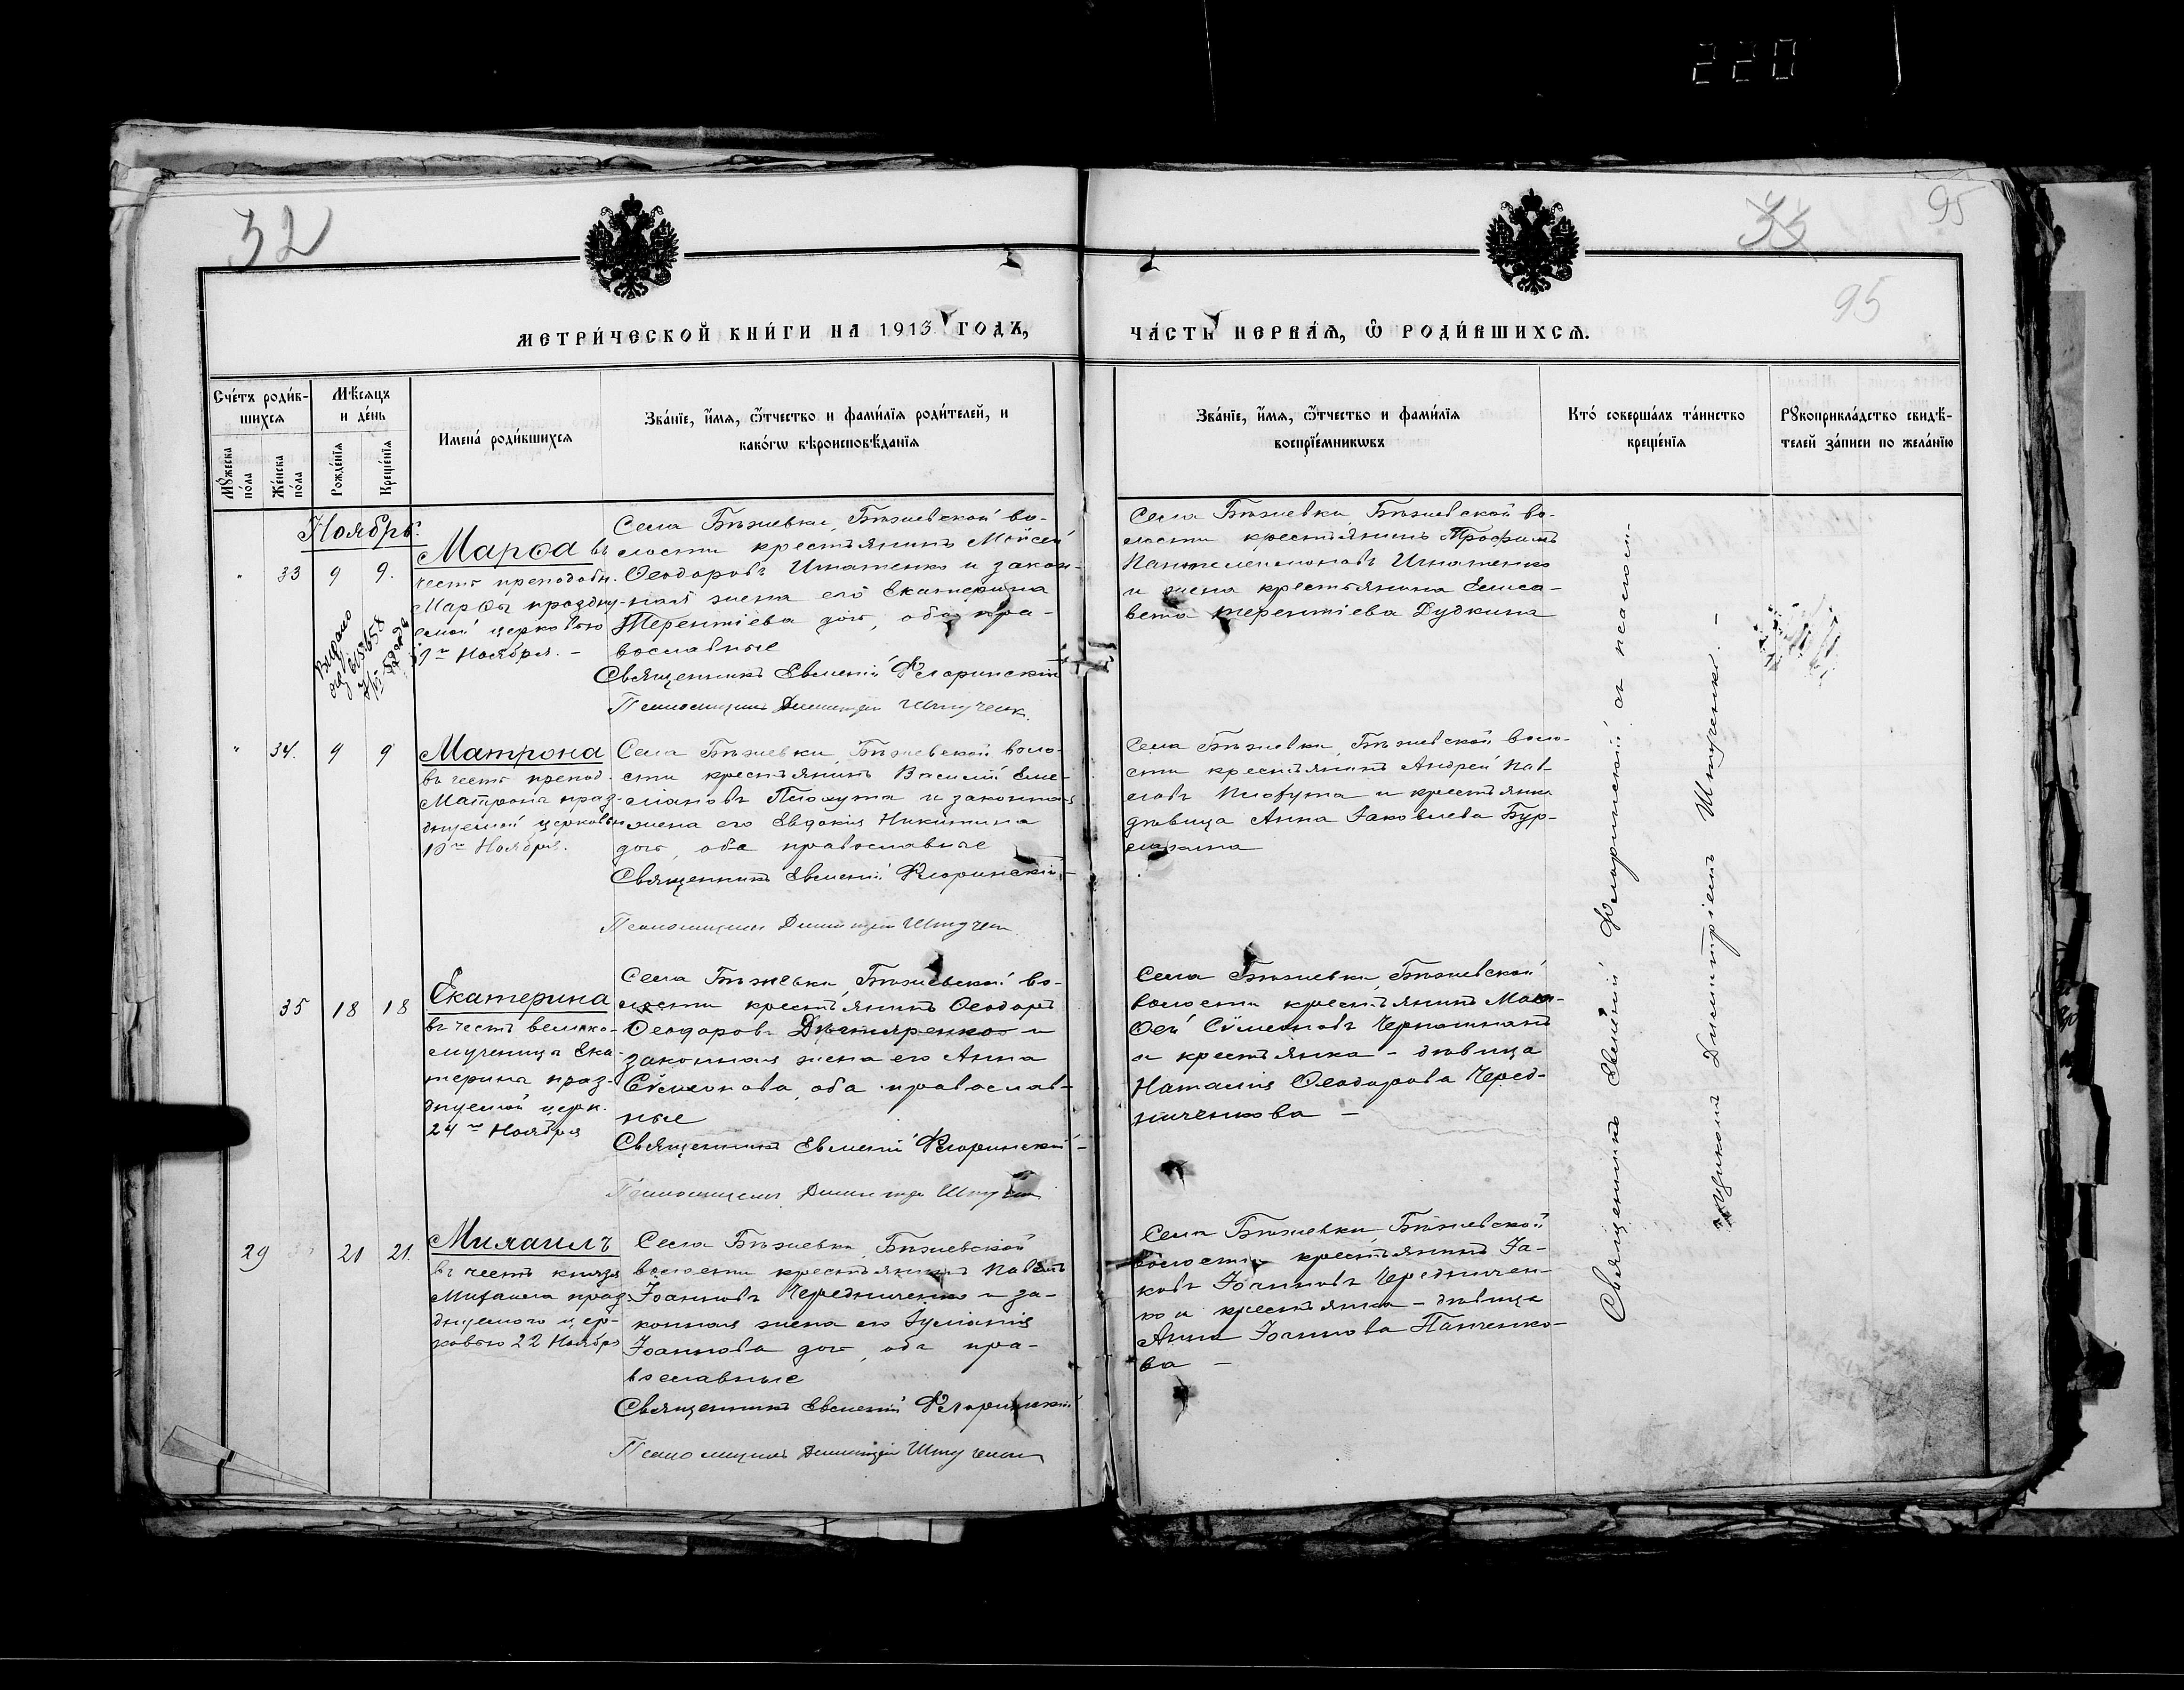 220
32
33
95
95
МЕТРИ́ЧЕСКОЙ КНИ́ГИ НА 1913 ГОДЪ,
ЧА́СТЬ ПЕРВА́Ѧ, Ѿ РОДИ́ВШИХСѦ.
Сче́тъ роди́в-
шихсѧ
Му́жеска по́ла
Же́нска по́ла
Мѣ́сѧцъ
и де́нь
Рожде́нїѧ
Креще́нїѧ
Имена́ роди́вшихсѧ
Зва́нїе, и́мѧ, ѻ҆́тчество и фами́лїѧ роди́телей, и
како́гѡ вѣроисповѣ́данїѧ
Зва́нїе, и́мѧ, ѻ҆́тчество и фами́лїѧ
воспрїе́мникѡвъ
Кто́ соверша́лъ та́инство
креще́нїѧ
Рꙋкоприкла́дство свидѣ́-
телей за́писи по жела́нїю
Ноябрь.
" 33 9 9.
Марѳа въ
честь преподобн.
Марѳы праздну-
емой церковью
9го Ноября. –
Видано
Села Бѣжевки, Бѣжевской во-
лости крестьянинъ Мѡѵсей
Ѳеодоровъ Игнатенко и закон-
ная жена его Екатерина
Терентіева доч, оба пра-
вославные
Священникъ Евменій Флоринскій
Псаломщикъ Димитрій Штученк.
Села Бѣжевки, Бѣжевской во-
лости крестьянинъ Трофимъ
Пантелеимоновъ Игнатенко
и жена крестьянина Елиса-
вета Терентіева Дудкина
" 34. 9 9
Матрона
въ честь препод.
Матроны праз-
днуемой церковью
Ноября.
Села Бѣжевки, Бѣжевской воло-
сти крестьянинъ Василій Еме-
ліановъ Плохута и законная
жена его Евдокія Никитина
доч, оба православные
Священникъ Евменій Флоринскій –
Псаломщикъ Димитрій Штучен
Села Бѣжевки, Бѣжевской воло-
сти крестьянинъ Андрей Пав-
ловъ Плохута и крестьянка
дѣвица Анна Іаковлева Бур-
35 18 18
Екатерина
въ честь велико-
мученицы Ека-
терины праз-
днуемой церк.
24го Ноября
Села Бѣжевки, Бѣжевской во-
лости крестьянинъ Ѳеодоръ
Ѳеодоровъ Дѣхтяренко и
законная жена его Анна
Сѵмеонова, оба православ-
ные
Священникъ Евменій Флоринскій –
Псаломщикъ Димитрій Штучен
Села Бѣжевки, Бѣжевской
волости крестьянинъ
Сѵмеоновъ
и крестьянка – дѣвица
Наталія Ѳеодорова Черед-
ниченкова –
29 21 21.
Михаилъ
въ честь князя
Михаила праз-
днуемого цер-
ковью 22 Ноября
Села Бѣжевки, Бѣжевской
волости крестьянинъ Павелъ
Іоанновъ Чередниченко и за-
конная жена его Іуліанія
Іоаннова доч, оба пра-
вославные
Священникъ Евменій Флоринскій
Псаломщикъ Димитрій Штученко
Села Бѣжевки, Бѣжевской
волости крестьянинъ Іа-
ковъ Іоанновъ Чередничен-
ко и крестьянка – дѣвица
Анна Іоаннова Панченко-
ва –
Священникъ Евменій Флоринскій съ псалом-
щикомъ Димитріемъ Штученко. –